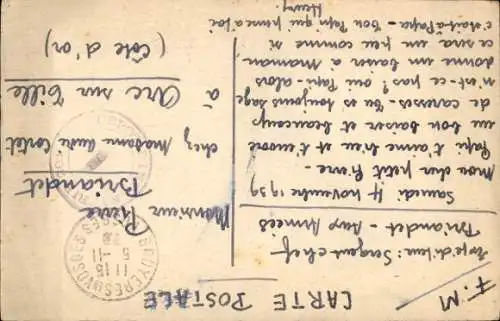 F.M.
CARTE POSTALE
Expéditeur: Sergent-chef
Briandet - aux Armées
Samedi 4 novembre 1939
Mon cher petit Pierre -
Papi t'aime bien et t'envoie
un bon baiser et beaucoup
de caresses. Tu es toujours sage
n'est-ce pas? oui Papi - alors
donne un baiser à Maman,
ce sera un peu comme si
c'était à Papa - ton Papi qui pense à toi
Henry.
Monsieur
Pierre
Briandet
chez Madame André Cortot
à
Arc sur Tille
(Côte d'or)
BRUYERES VOSGES
11 15
5 -11
39